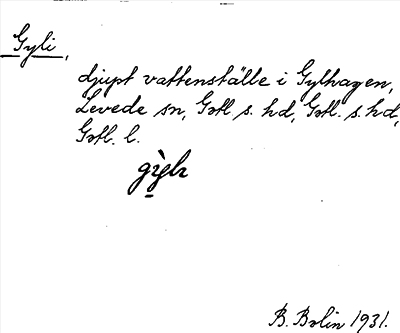 Gyli,
djupt vattenställe i Gylhagen,
Levede sn, Gotl s. hd, Gotl. s. hd,
Gotl. l.
B. Bolin 1931.